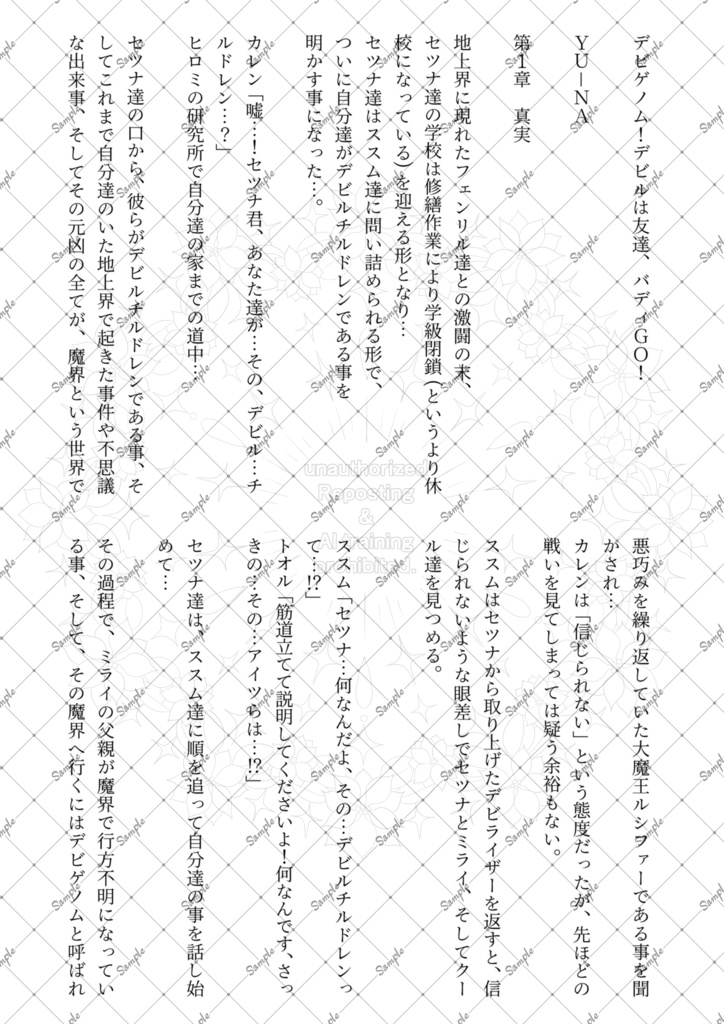 デビゲノム！デビルは友達、バディGO！
YU－NA
第1章　真実
地上界に現れたフェンリル達との激闘の末、
セツナ達の学校は修繕作業により学級閉鎖(というより休
校になっている)を迎える形となり…
セツナ達はススム達に問い詰められる形で、
ついに自分達がデビルチルドレンである事を
明かす事になった…。
カレン「嘘…！セツナ君、あなた達が…その、デビル…チ
ルドレン…？」
ヒロミの研究所で自分達の家までの道中…
セツナ達の口から、彼らがデビルチルドレンである事、そ
してこれまで自分達のいた地上界で起きた事件や不思議
な出来事、そしてその元凶の全てが、魔界という世界で
悪巧みを繰り返していた大魔王ルシファーである事を聞
かされ…
カレンは「信じられない」という態度だったが、先ほどの
戦いを見てしまっては疑う余裕もない。
ススムはセツナから取り上げたデビライザーを返すと、信
じられないような眼差しでセツナとミライ、そしてクー
ル達を見つめる。
ススム「セツナ…何なんだよ、その…デビルチルドレンっ
て…!?」
トオル「筋道立てて説明してくださいよ！何なんです、さっ
きの…その…アイツらは…!?」
セツナ達は、ススム達に順を追って自分達の事を話し始
めて…
その過程で、ミライの父親が魔界で行方不明になってい
る事、そして、その魔界へ行くにはデビゲノムと呼ばれ
unauthorized
Reposting
&
AI training
prohibited.
Sample